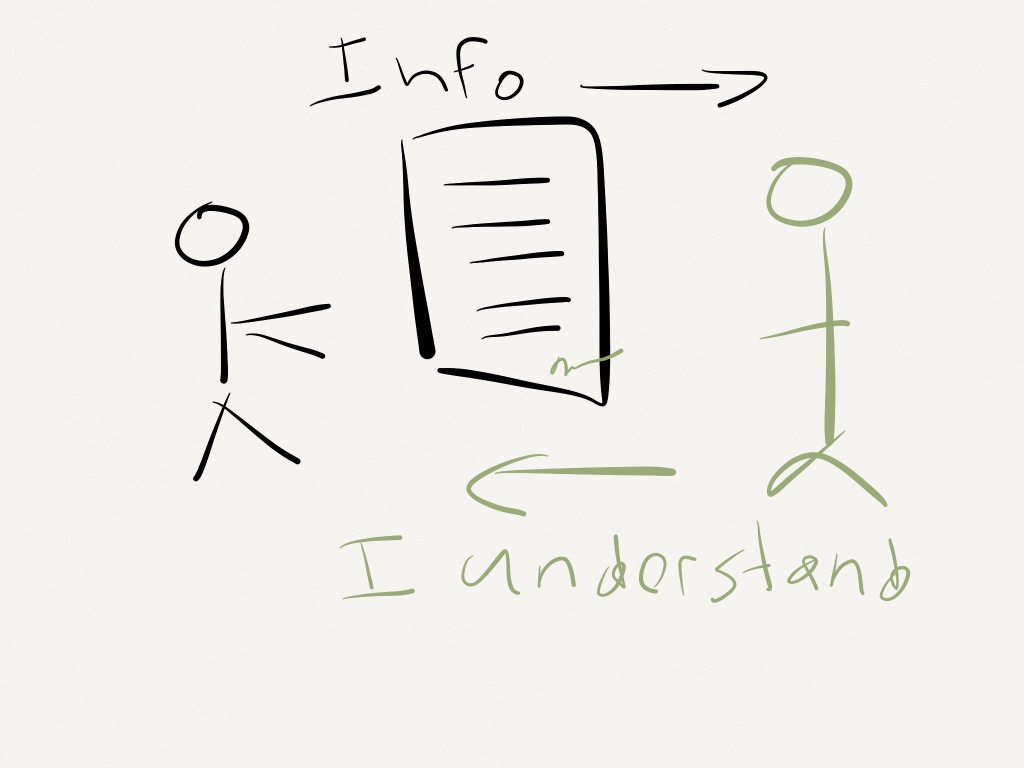 Info
I understand